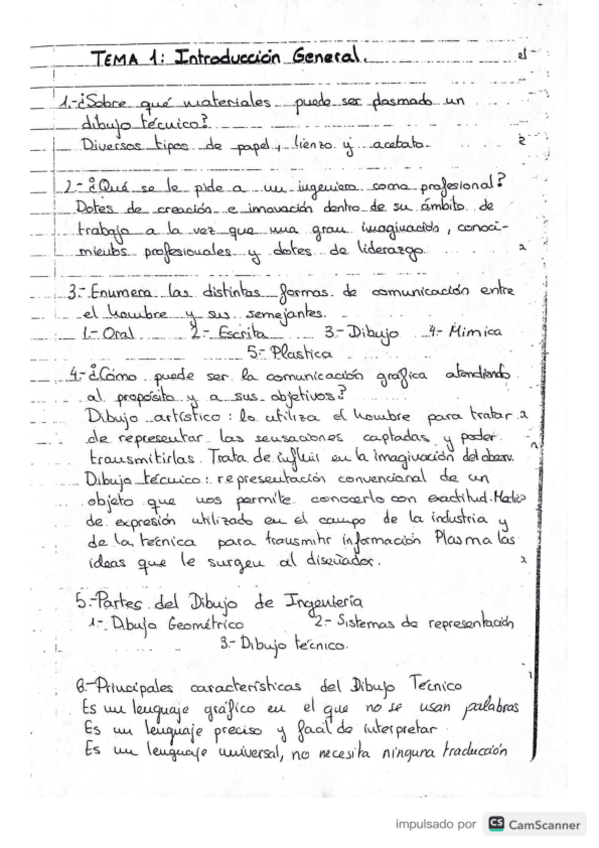 TEMA 1: Introducción General.
1.-¿Sobre qué materiales puede ser plasmado un
dibujo técnico?
Diversos tipos de papel, lienzo y acetato.
2.-¿Qué se le pide a un ingeniero como profesional?
Dotes de creación e innovación dentro de su ámbito de
trabajo a la vez que una gran imaginación, conoci-
mientos profesionales y dotes de liderazgo
3.-Enumera las distintas formas de comunicación entre
el hombre y sus semejantes.
1.-Oral 2.-Escrita 3.-Dibujo 4.-Mimica
5.-Plastica
4.-¿Cómo puede ser la comunicación gráfica atendiendo
al propósito y a sus objetivos?
Dibujo artístico: lo utiliza el hombre para tratar
de representar las sensaciones captadas y poder
transmitirlas. Trata de influir en la imaginación del observ.
Dibujo técnico: representación convencional de un
objeto que nos permite conocerlo con exactitud. Medio
de expresión utilizado en el campo de la industria y
de la técnica para transmitir información Plasma las
ideas que le surgen al diseñador.
5.-Partes del Dibujo de Ingeniería
1.-Dibujo Geométrico 2.-Sistemas de representación
3.-Dibujo técnico.
6.-Principales características del Dibujo Técnico
Es un lenguaje gráfico en el que no se usan palabras
Es un lenguaje preciso y facil de interpretar
Es un lenguaje universal, no necesita ninguna traducción
impulsado por CS CamScanner